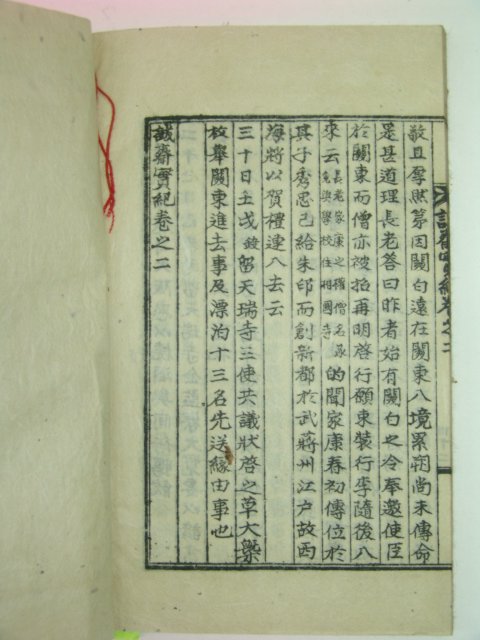 敬且厚然第因關白遠在關東入境累朔尚未傳命
是甚道理長老答曰昨者始有關白之令奉邀使臣
於關東而僧亦被招再明啓行願束裝行李隨後入
來云長老豪康之權僧名承兌與學校住相國寺的聞家康春初傳位於
其子秀忠已給朱印而創新都於武蔣州江戶故西
海將以賀禮連入去云
三十日壬戌晴留天瑞寺三使共議狀啓之草大槩
枚擧關東進去事及漂泊十三名先送緣由事也
誠齋實紀卷之二
誠齋實紀卷之二